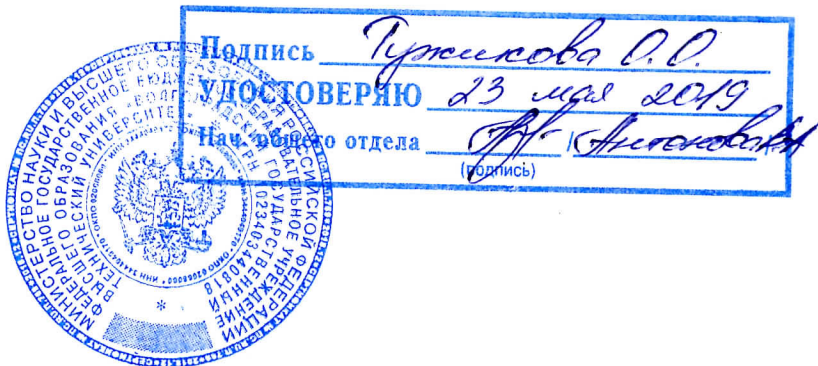 Подпись Тужикова О.О.
УДОСТОВЕРЯЮ 23 мая 2019
Нач. общего отдела / Антонова
(подпись)
МИНИСТЕРСТВО НАУКИ И ВЫСШЕГО ОБРАЗОВАНИЯ РОССИЙСКОЙ ФЕДЕРАЦИИ
ФЕДЕРАЛЬНОЕ ГОСУДАРСТВЕННОЕ БЮДЖЕТНОЕ ОБРАЗОВАТЕЛЬНОЕ УЧРЕЖДЕНИЕ
ВЫСШЕГО ОБРАЗОВАНИЯ ВОЛГОГРАДСКИЙ ГОСУДАРСТВЕННЫЙ
ТЕХНИЧЕСКИЙ УНИВЕРСИТЕТ ОГРН 1023403440818